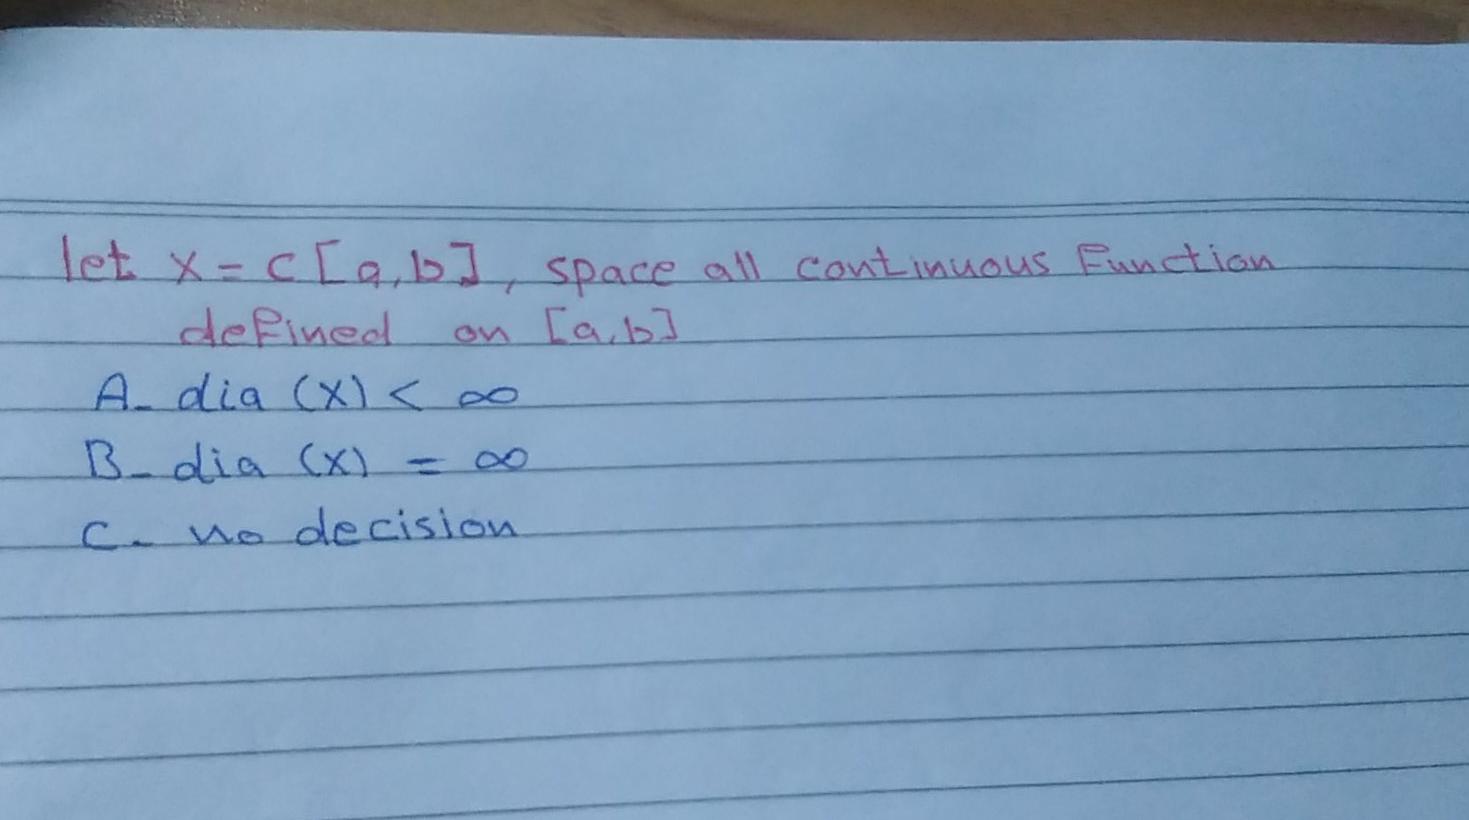 let x = c [a,b], space all continuous Function
defined on [a,b]
A- dia (x) < ∞
B- dia (x) = ∞
C- no decision